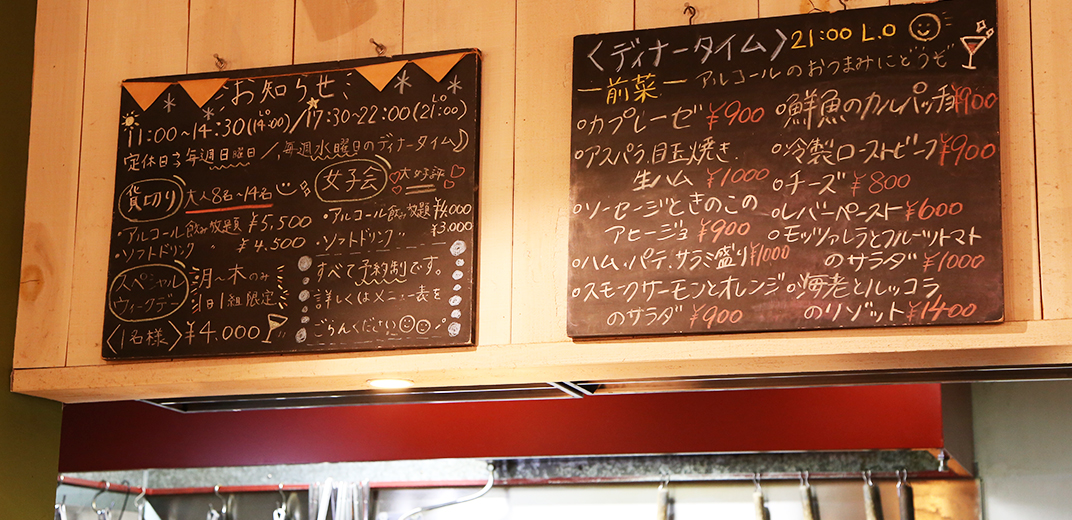 お知らせ
11:00～14:30(LO 14:00)/17:30～22:00(LO 21:00)
定休日→毎週日曜日/毎週水曜日のディナータイム
貸切り 大人8名～14名
・アルコール飲み放題 ¥5,500
・ソフトドリンク 〃 ¥4,500
女子会 大好評
・アルコール飲み放題 ¥4,000
・ソフトドリンク 〃 ¥3,000
スペシャル
ウィークデー
月～木のみ
1日1組限定
〈1名様〉¥4,000
すべて予約制です。
詳しくはメニュー表を
ごらんください
〈ディナータイム〉21:00 L.O
ー前菜ー アルコールのおつまみにどうぞ
カプレーゼ ¥900
アスパラ、目玉焼き、
生ハム ¥1000
ソーセージときのこの
アヒージョ ¥900
ハム、パテ、サラミ盛り ¥1000
スモークサーモンとオレンジ
のサラダ ¥900
鮮魚のカルパッチョ ¥900
冷製ローストビーフ ¥900
チーズ ¥800
レバーペースト ¥600
モッツァレラとフルーツトマト
のサラダ ¥1000
海老とルッコラ
のリゾット ¥1400